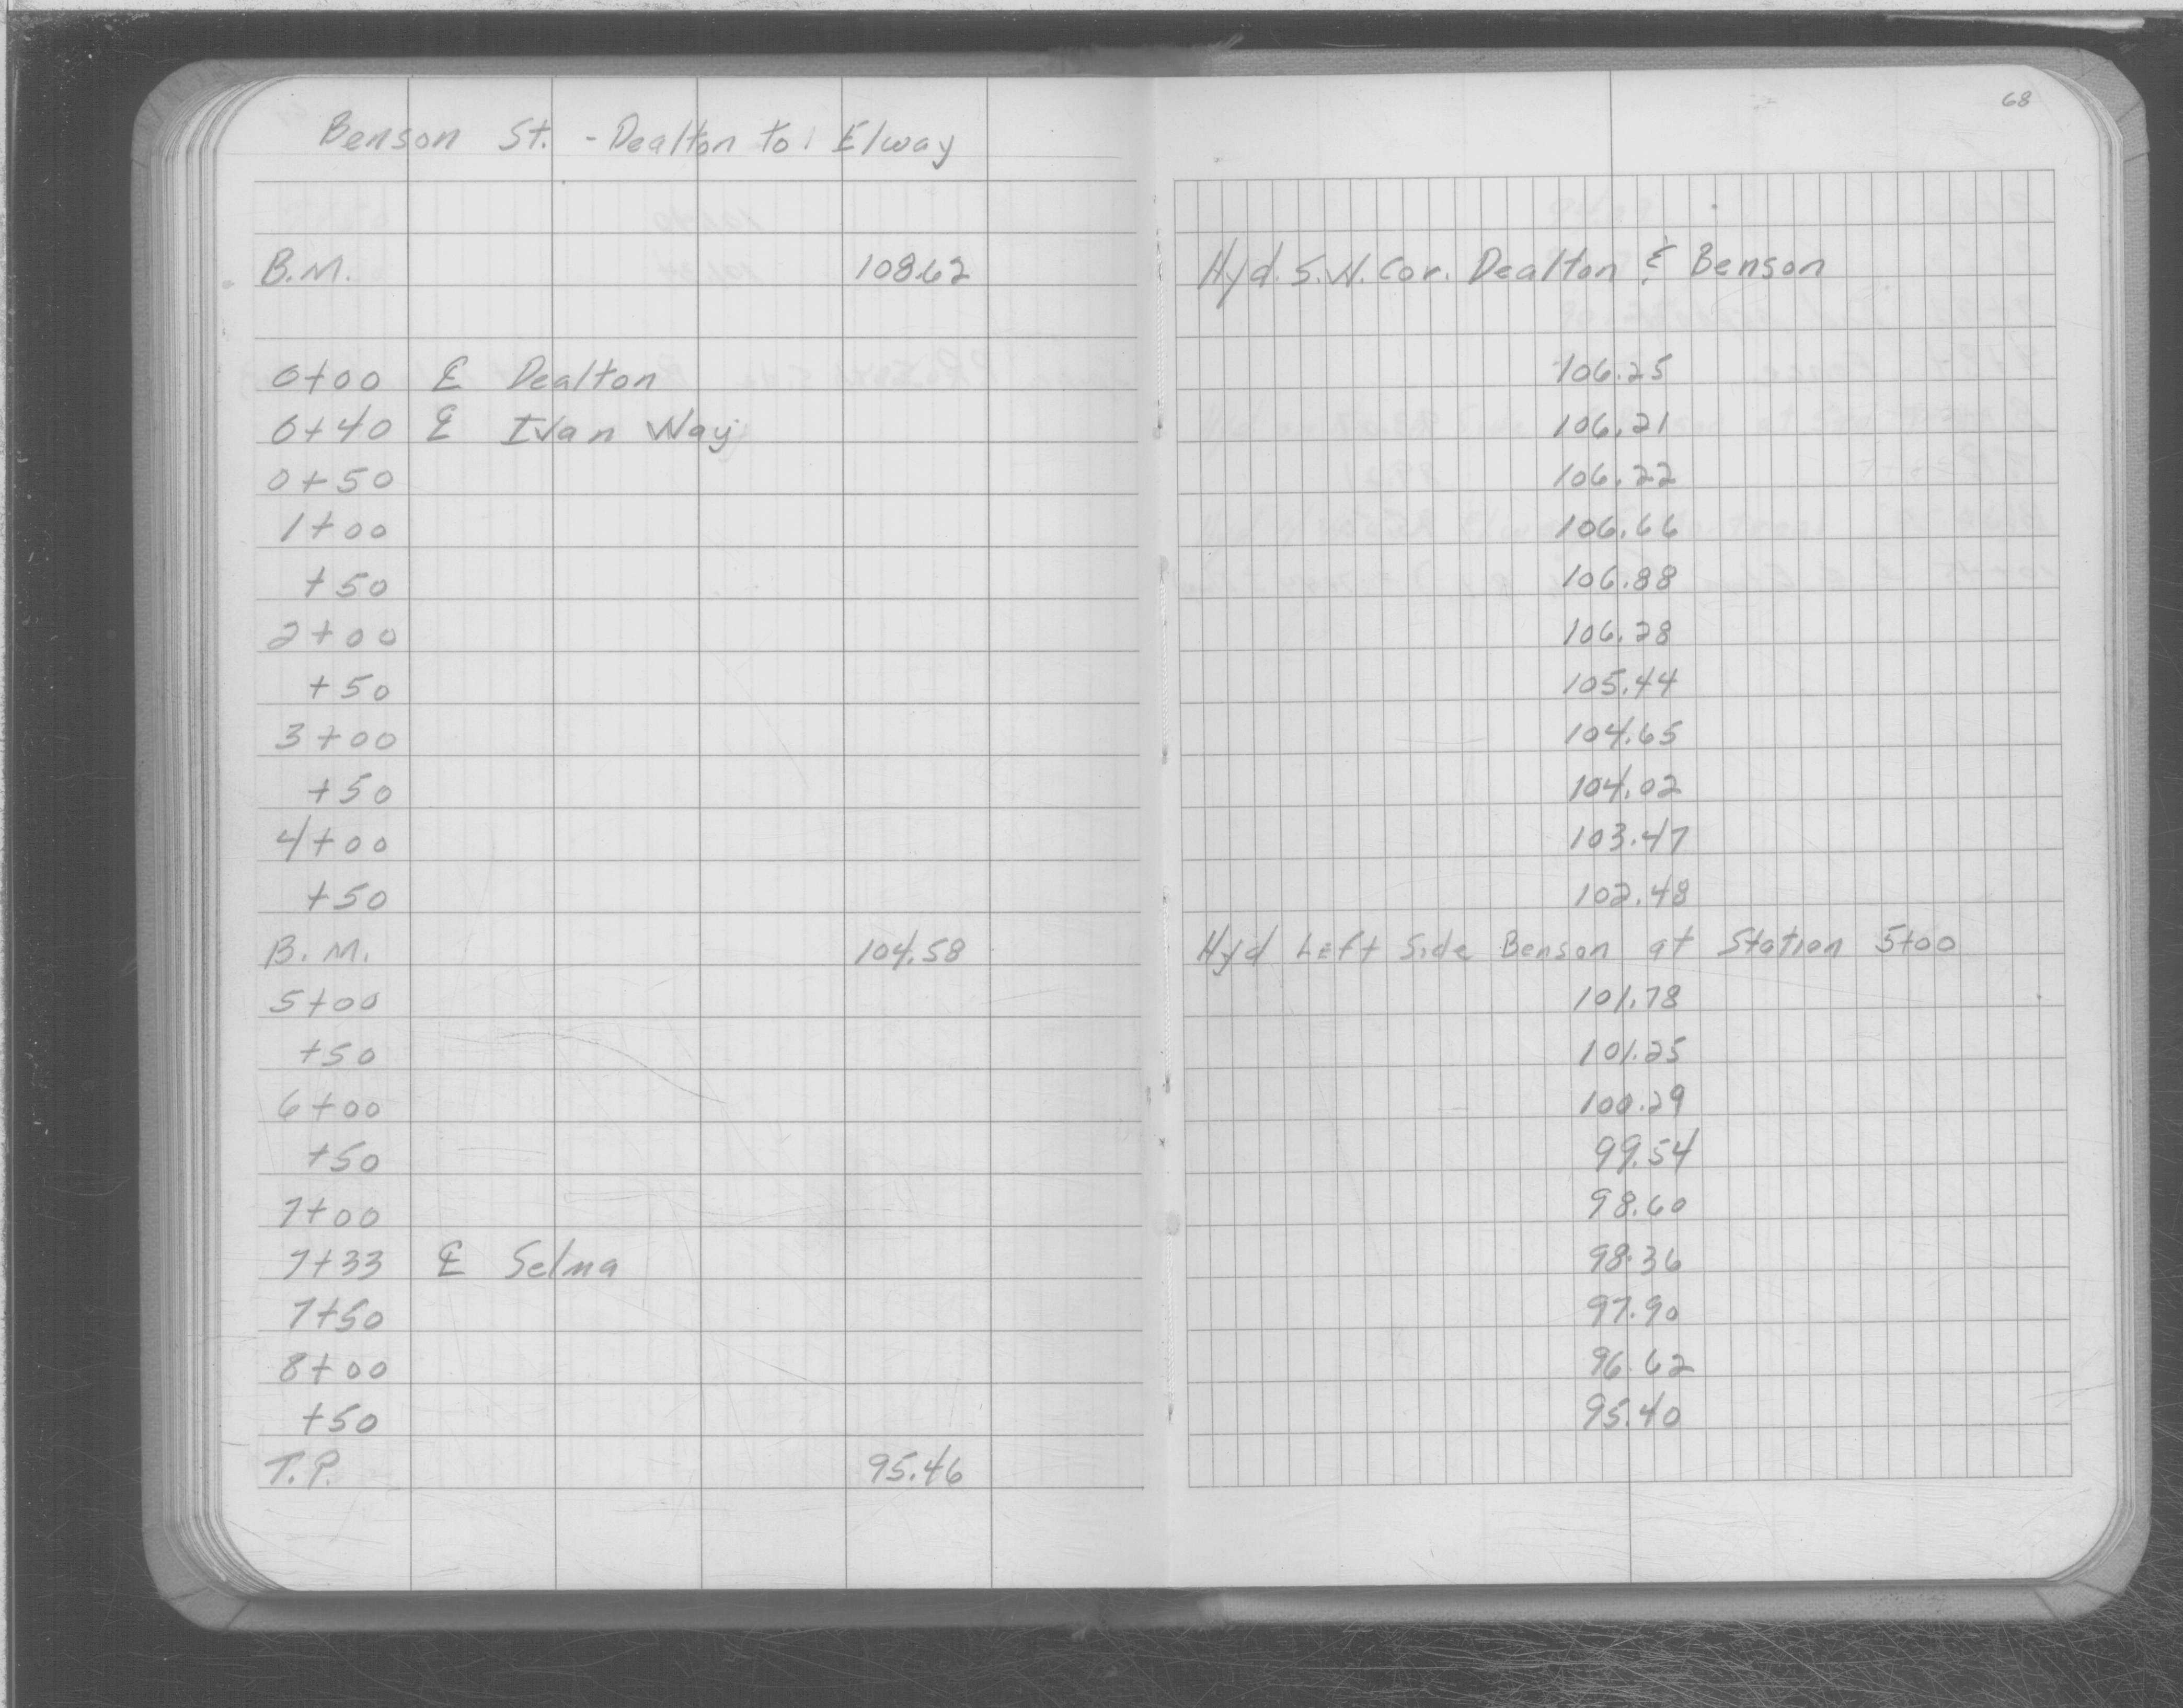 68
Benson St. - Dealton to Elway
B.M. 108.62 Hyd. S.W. Cor. Dealton & Benson
0+00 ℄ Dealton 106.25
0+40 ℄ Ivan Way 106.21
0+50 106.22
1+00 106.66
+50 106.88
2+00 106.28
+50 105.44
3+00 104.65
+50 104.02
4+00 103.47
+50 102.48
B.M. 104.58 Hyd Left Side Benson at Station 5+00
5+00 101.78
+50 101.25
6+00 100.29
+50 99.54
7+00 98.60
7+33 ℄ Selma 98.36
7+50 97.90
8+00 96.62
+50 95.40
T.P. 95.46